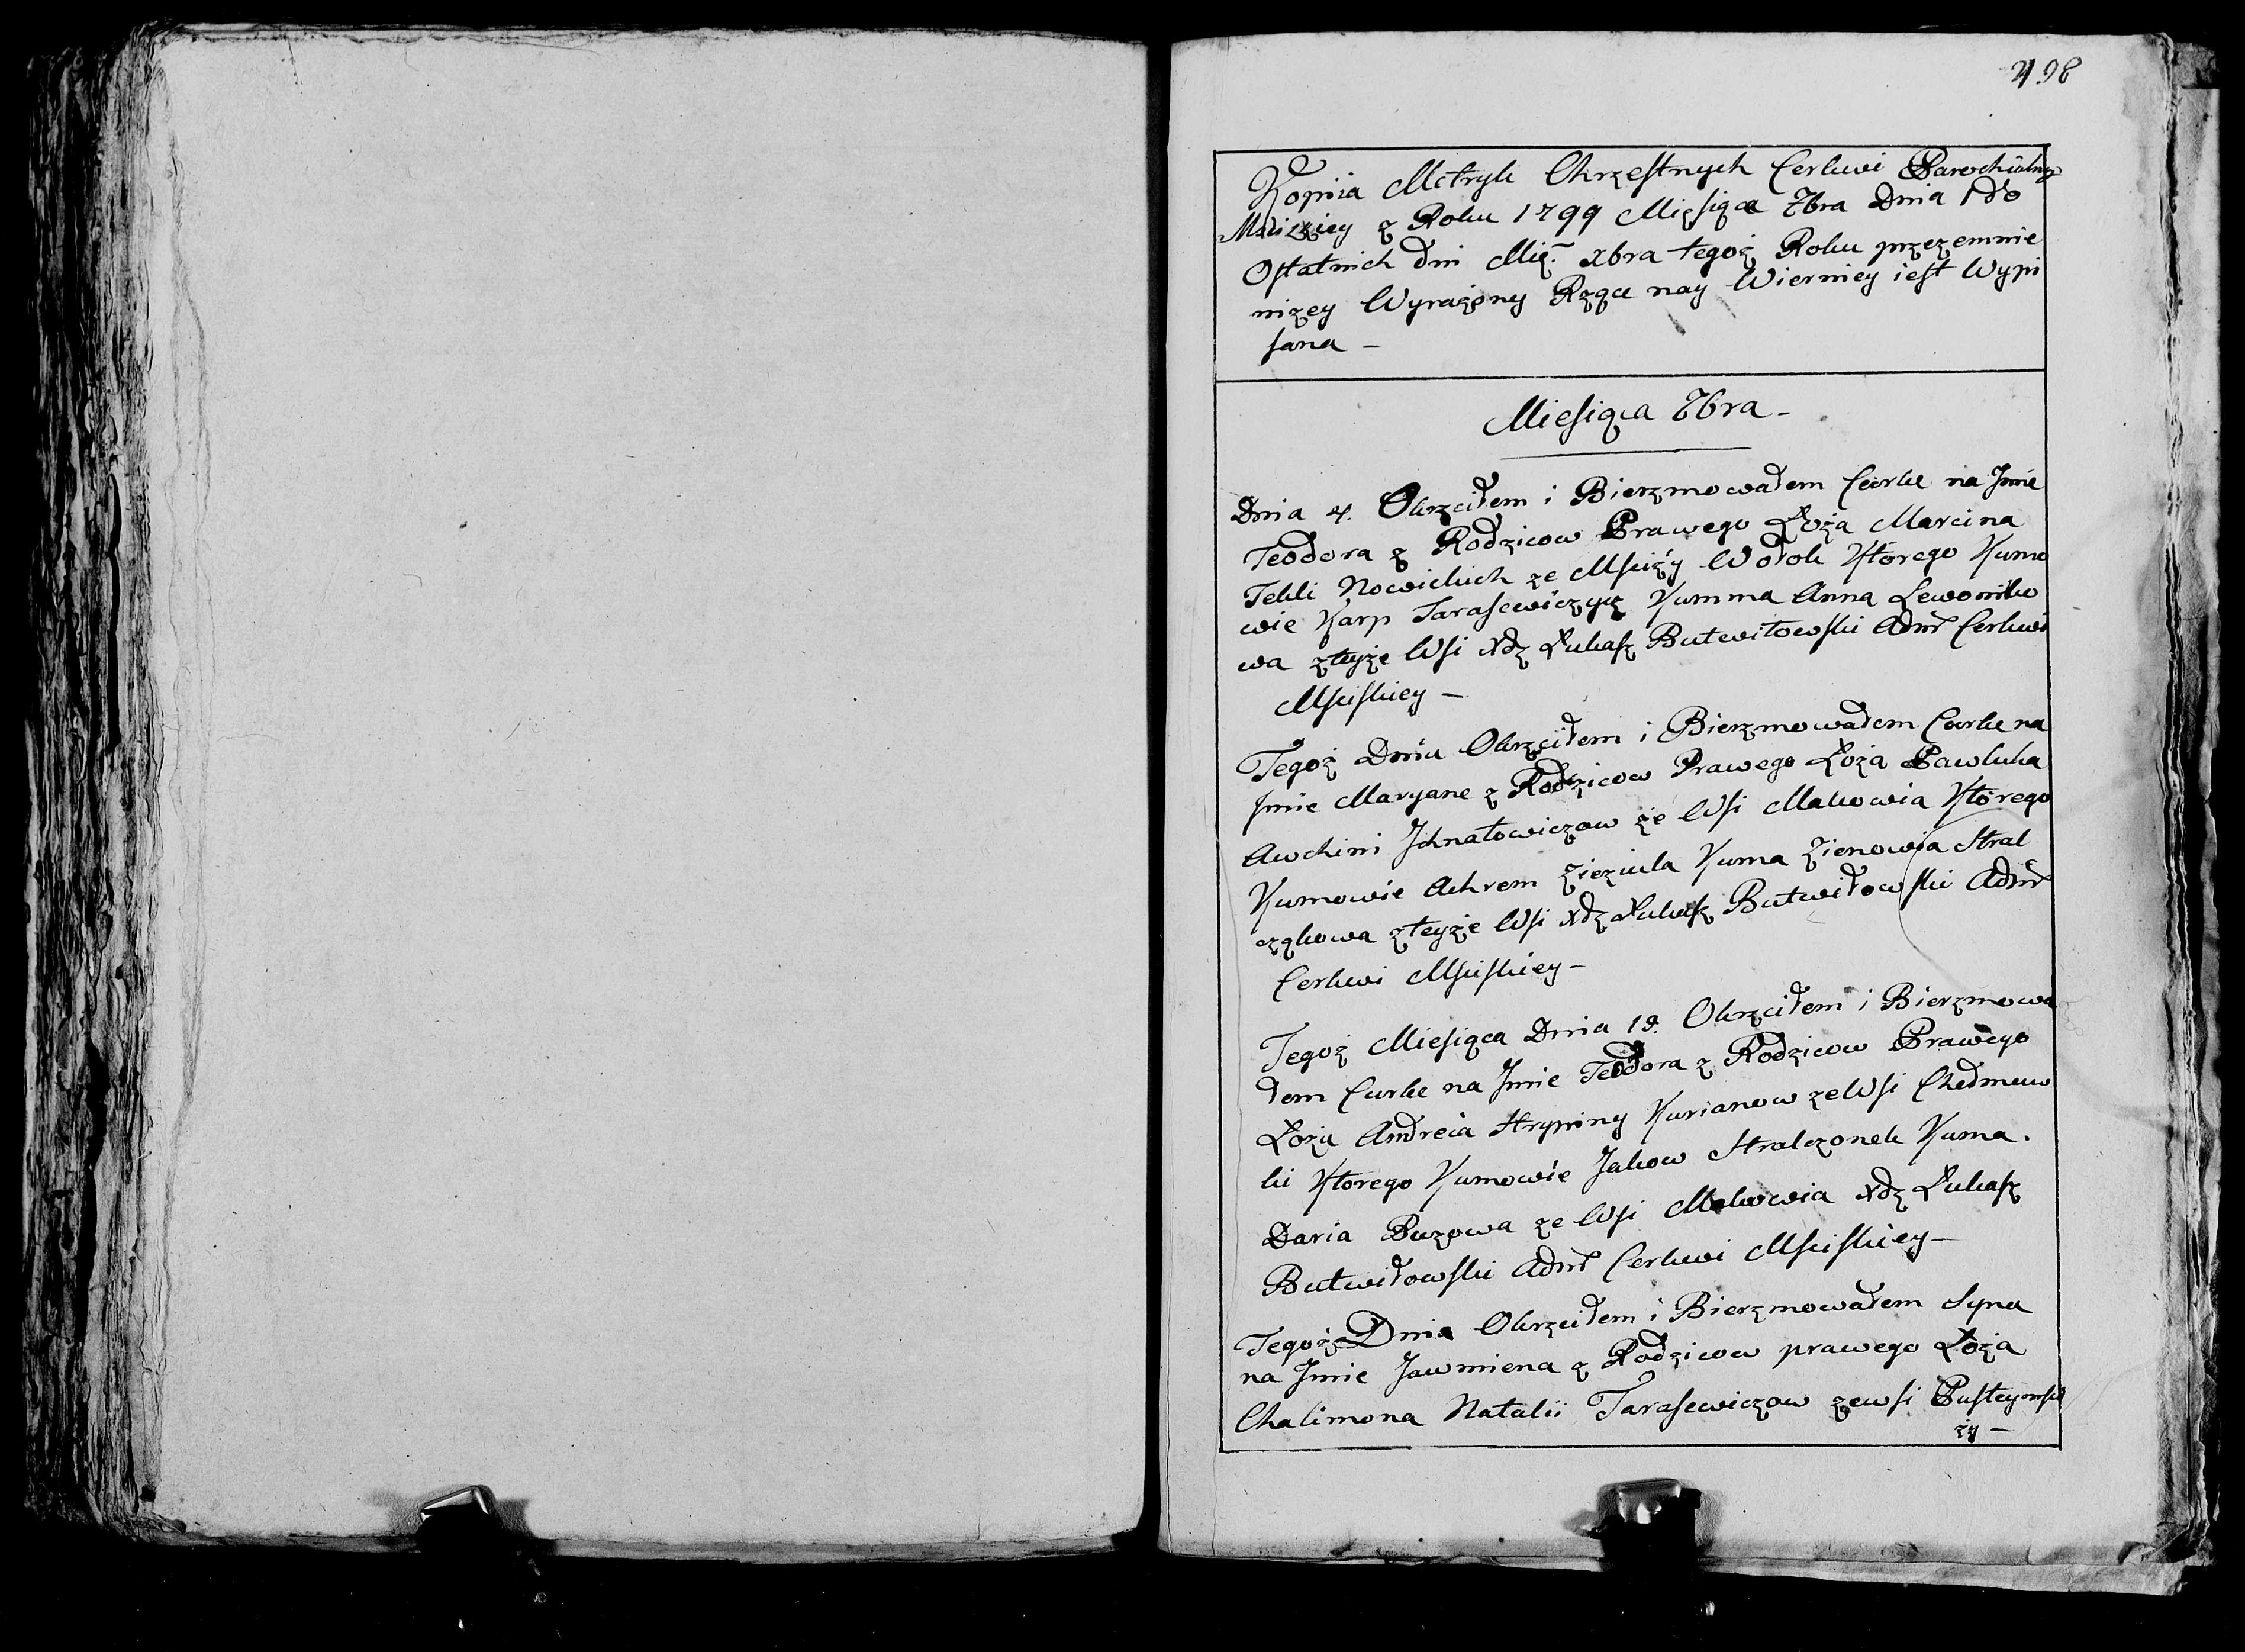 498
Kopiia Metryk Chrzestnych Cerkwi Parochialney
Msciżkiey z Roku 1799 Mięsiąca 7bra Dnia 1 do
Ostatnich dni Mię. xbra tegoż Roku przezemnie
niżey Wyrażony Rzqce nay Wierniey iest Wypi
sana –
Miesiąca 7bra –
Dnia 4. Okrzciłem i Bierzmowałem Corke na Jmie
Teodora z Rodzicow Prawego Łoża Marcina
Tekli Nowickich ze Mściży Wołok Ktorego Kumo
wie Karp Tarasewiczyz Kumma Anna Lewonko
wa zteyże Wsi xdz Łukasz Butwiłowski Admr Cerkwi
Msciskiey –
Tegoż Dnia Okrzciłem i Bierzmowałem Corke na
Jmie Maryane z Rodzicow Prawego Łoża Pawluka
Awchini Jhnatowiczow ze Wsi Makowia Ktorego
Kumowie Achrem Zieziula Kuma Zienowia Stral
cząkowa zteyże Wsi xdz Łukasz Butwiłowski Admr
Cerkwi Msciskiey –
Tegoż Miesiąca Dnia 19. Okrzciłem i Bierzmowa
łem Curke na Jmie Teodora z Rodzicow Prawego
Łoża Andreia Hrypiny Kurianow ze Wsi Chedmuw
ki Ktorego Kumowie Jakow Stralczonek Kuma.
Daria Buzowa ze Wsi Makowia xdz Łukasz
Butwiłowski Admr Cerkwi Msciskiey –
Tegoż Dnia Okrzciłem i Bierzmowałem Syna
na Jmie Jawmiena z Rodzicow prawego Łoża
Chalimona Natalii Tarasewiczow zewsi Pusteymsci
ży –